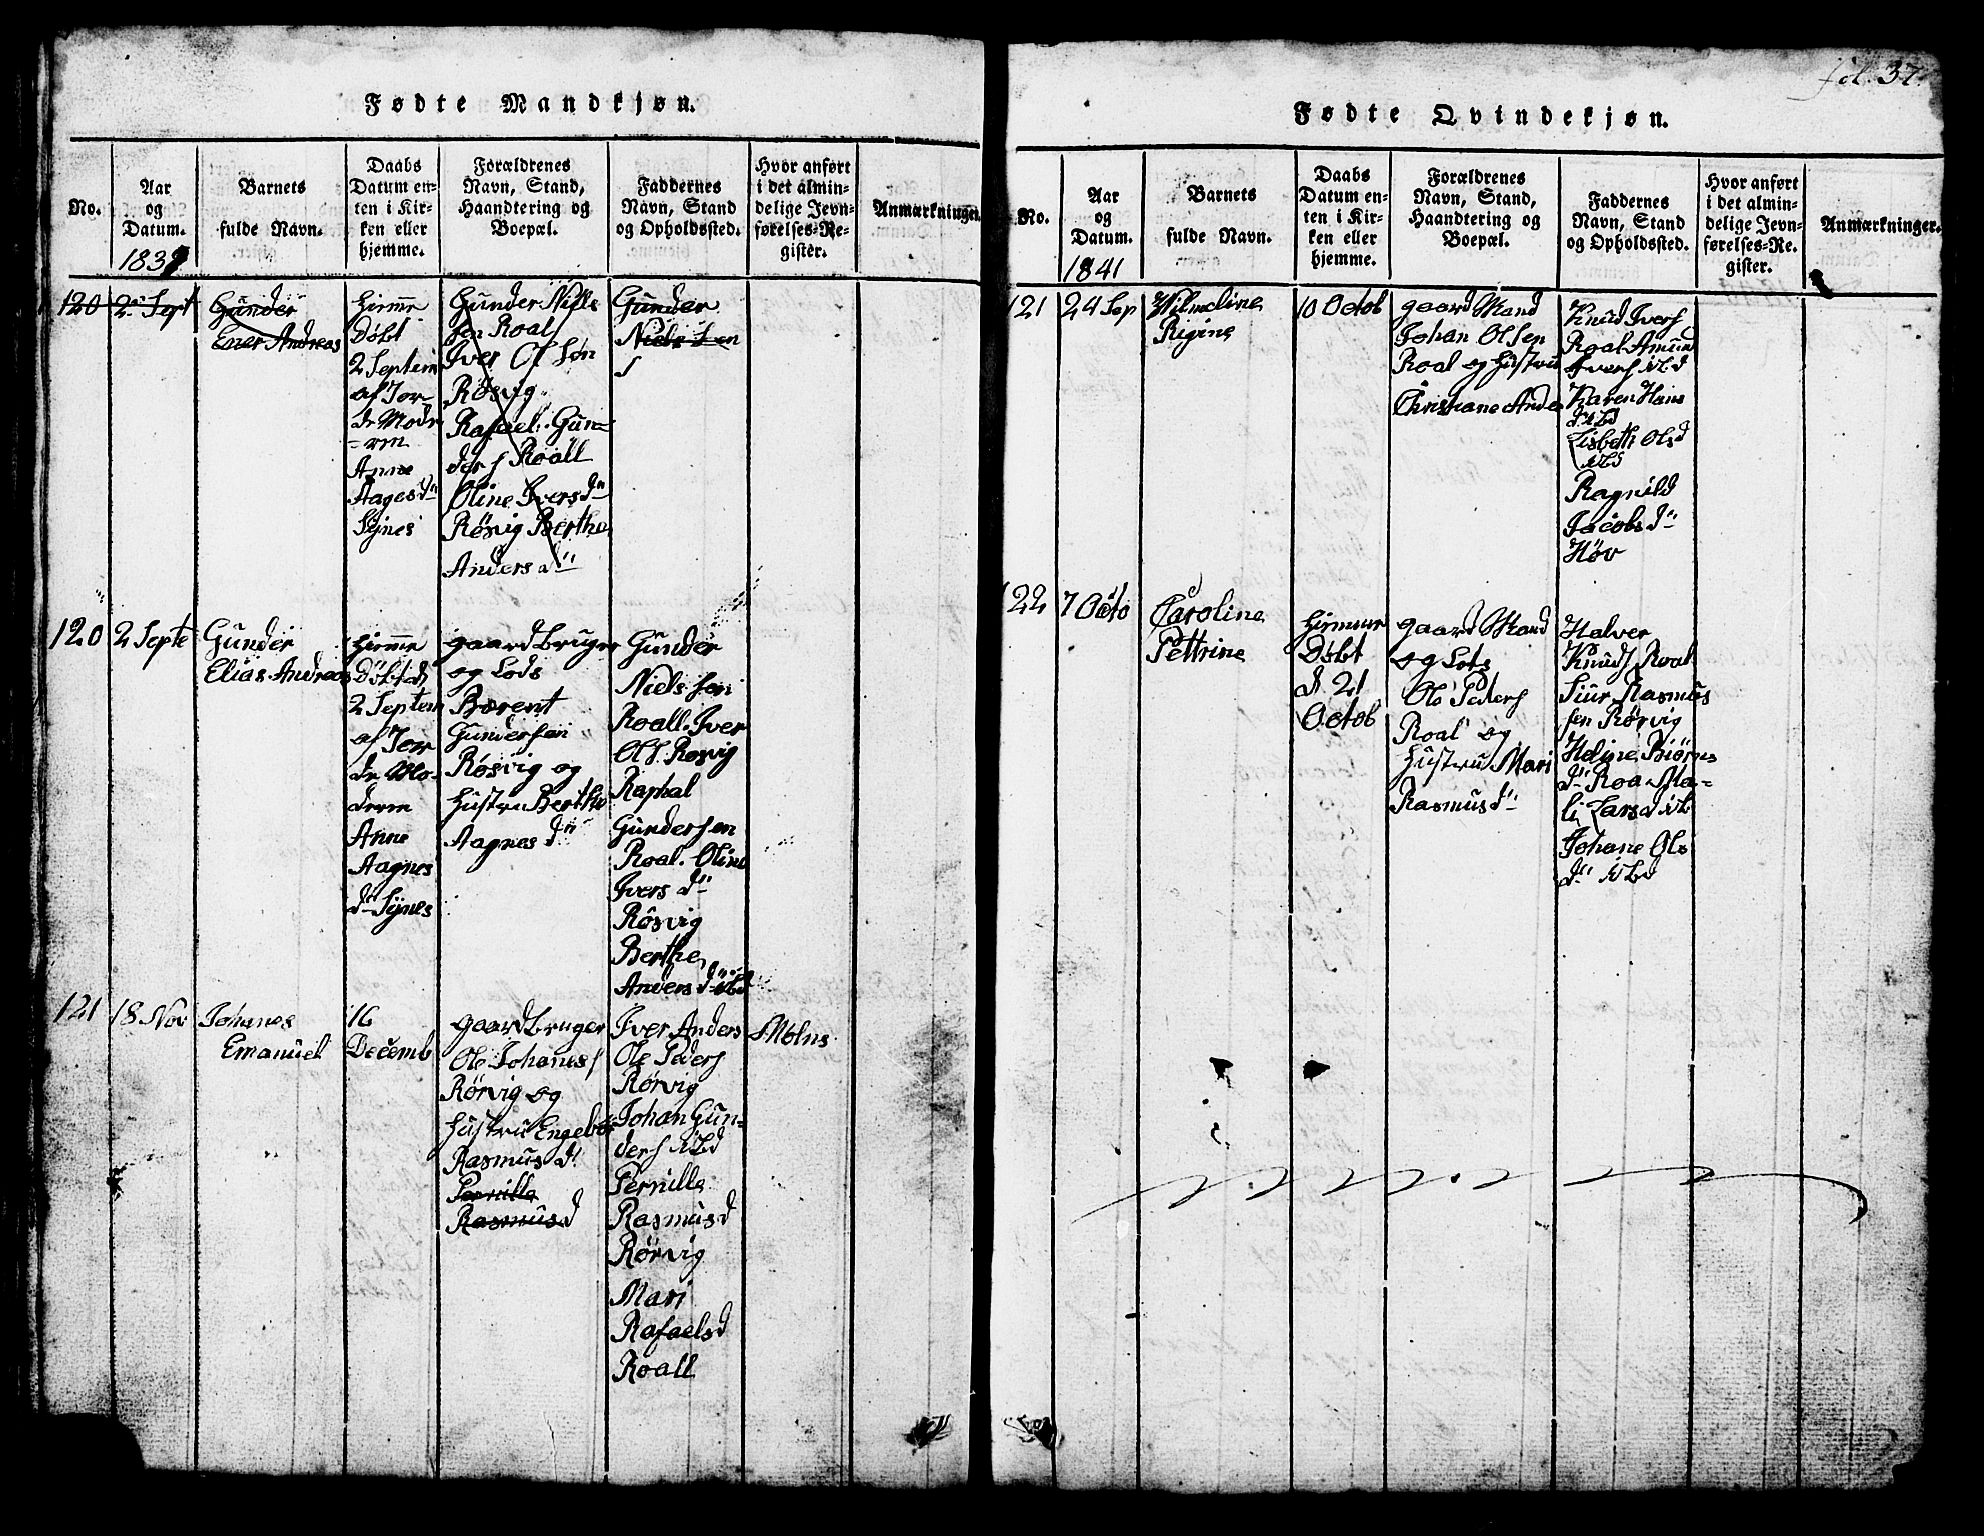 Fødte Mandkjøn.
No.
Aar
og
Datum.
1839
Barnets
fulde Navn.
Daabs
Datum en-
ten i Kir-
ken eller
hjemme.
Forældrenes
Navn, Stand,
Haandtering og
Boepæl.
Faddernes
Navn, Stand
og Opholdssted.
Hvor anført
i det almin-
delige Jevn-
førelses-Re-
gister.
Anmærkninger.
120
2 Sept
Gunder
Ener Andreas
Hiemme
Døbt
2 Septem
af Jor-
de Modr
=ren
Anne
Aagesdr
Synes
Gunder Nills
sen Roal
Iver Ol søn
Røsvig
Rafael. Gun=
ders Roall
Oline Iversdr
Røsvig Berthe
Andersdr
Gunder
Niels sen
120
2 Septe
Gunder
Elias Andreas
Hiemme
Døbt d
2 Septem
af Jor
de Mo-
deren
Anne
Aagnes
dr Synes
gaardbruger
og Lods
Bærent
Gundersen
Røsvig og
Hustru Berthe
Aagnes dr
Gunder
Nielssen
Roall. Iver
Ols. Rosvig
Raphal
Gundersen
Roal. Oline
Ivers dr
Røsvig
Berthe
Anders dr ibd
121
18 Nov
Johanes
Emanuel
16
Decemb
gaardbruger
Ole Johanes
Rørvig og
Hustru Engebor
Rasmus dr
Pernille
Rasmusd
Iver Anders
Ole Peders
Rørvig
Johan Gun-
ders ibd
Pernille
Rasmusd
Rørvig
Mari
Rafaelsd
Roall
fol. 37.
Fødte Qvindekjøn.
No.
Aar
og
Datum.
1841
Barnets
fulde Navn.
Daabs
Datum en-
ten i Kir-
ken eller
hjemme.
Forældrenes
Navn, Stand,
Haandtering og
Boepæl.
Faddernes
Navn, Stand
og Opholdssted.
Hvor anført
i det almin-
delige Jevn-
førelses-Re.
gister.
Anmærkninger.
121
24 Sep
Wilmeline
Rigine
10 Octob
gaard Mand
Johan Olsen
Roal og Hustru
Christiane Ander
Knud Ivers
Roal Amund
Ivers ibd
Karen Hans
d ibd
Lisbeth Olsd
ibd
Ragnild
Jacobs dr
Høv
122
7 Octo
Caroline
Pettrine
Hiemmr
Døbt
d 21
Octob
gaard Mand
og Lots
Ole Peders
Roal og
Hustru Mari
Rasmusdr
Halver
Knuds Roal
Siur Rasmus
sen Rørvig
Heline Biørns
dr Roa Ma=
li Lars d ibd
Johane Ols
dr ibd